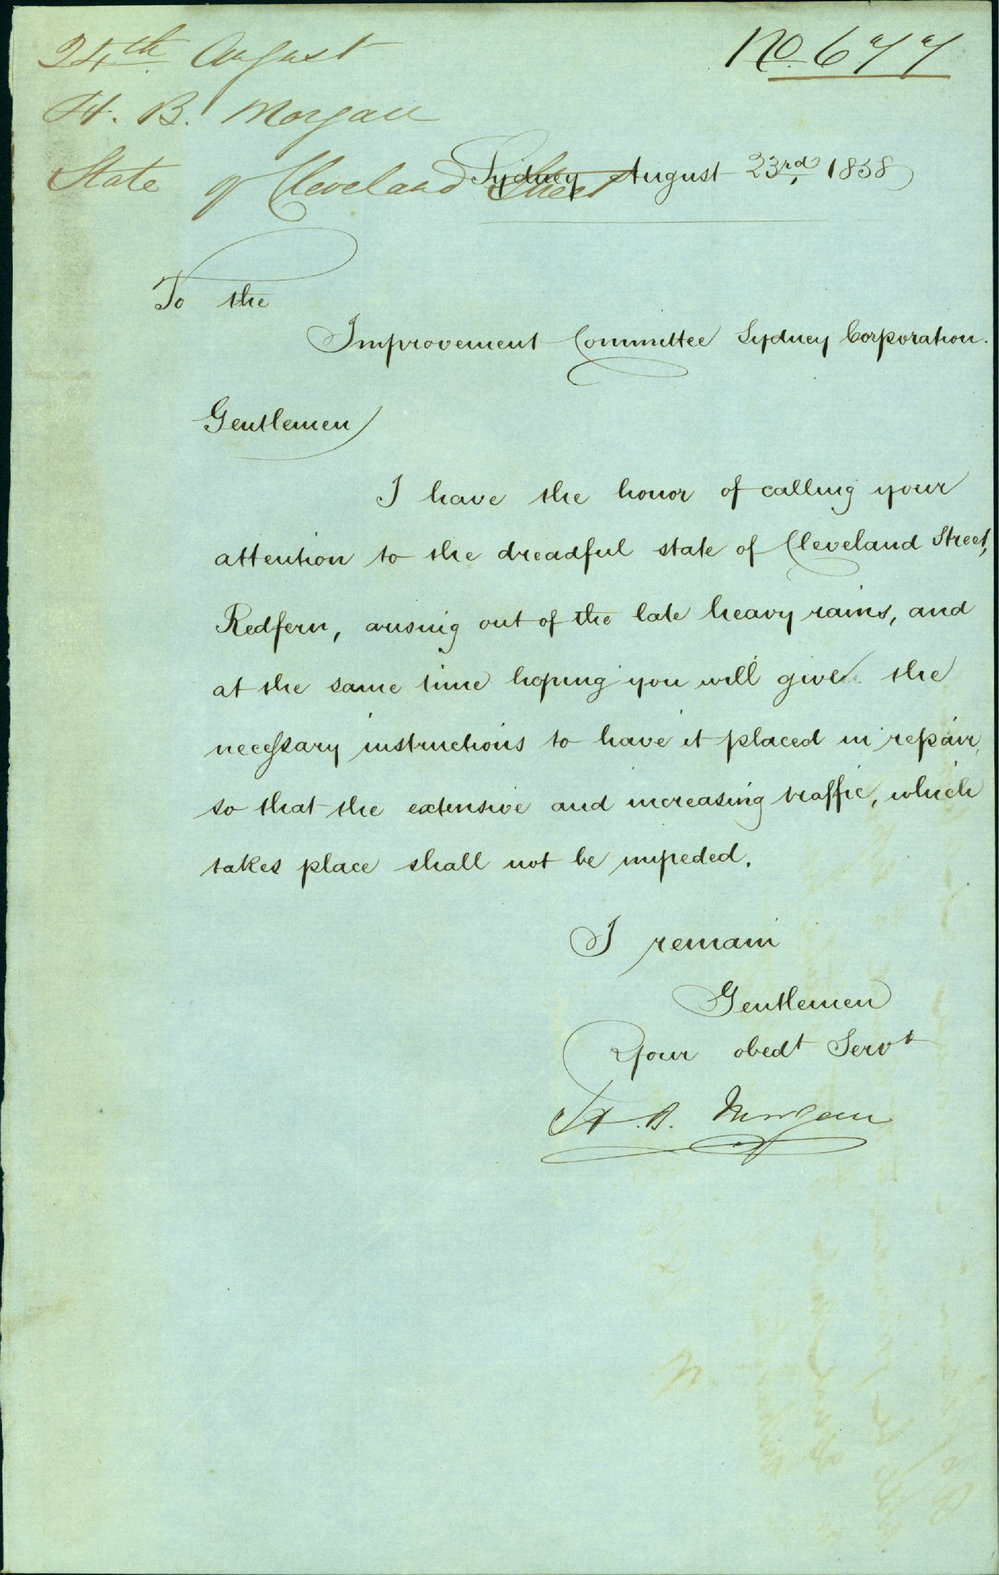 24th August
No. 677
H. B. Morgan
State of Cleveland Street
Sydney August 23rd, 1858
To the
Improvement Committee Sydney Corporation.
Gentlemen
I have the honor of calling your
attention to the dreadful state of Cleveland Street,
Redfern, arising out of the late heavy rains, and
at the same time hoping you will give the
necessary instructions to have it placed in repair,
so that the extensive and increasing traffic, which
takes place shall not be impeded.
I remain
Gentlemen
Your obedt Servt
H. B. Morgan